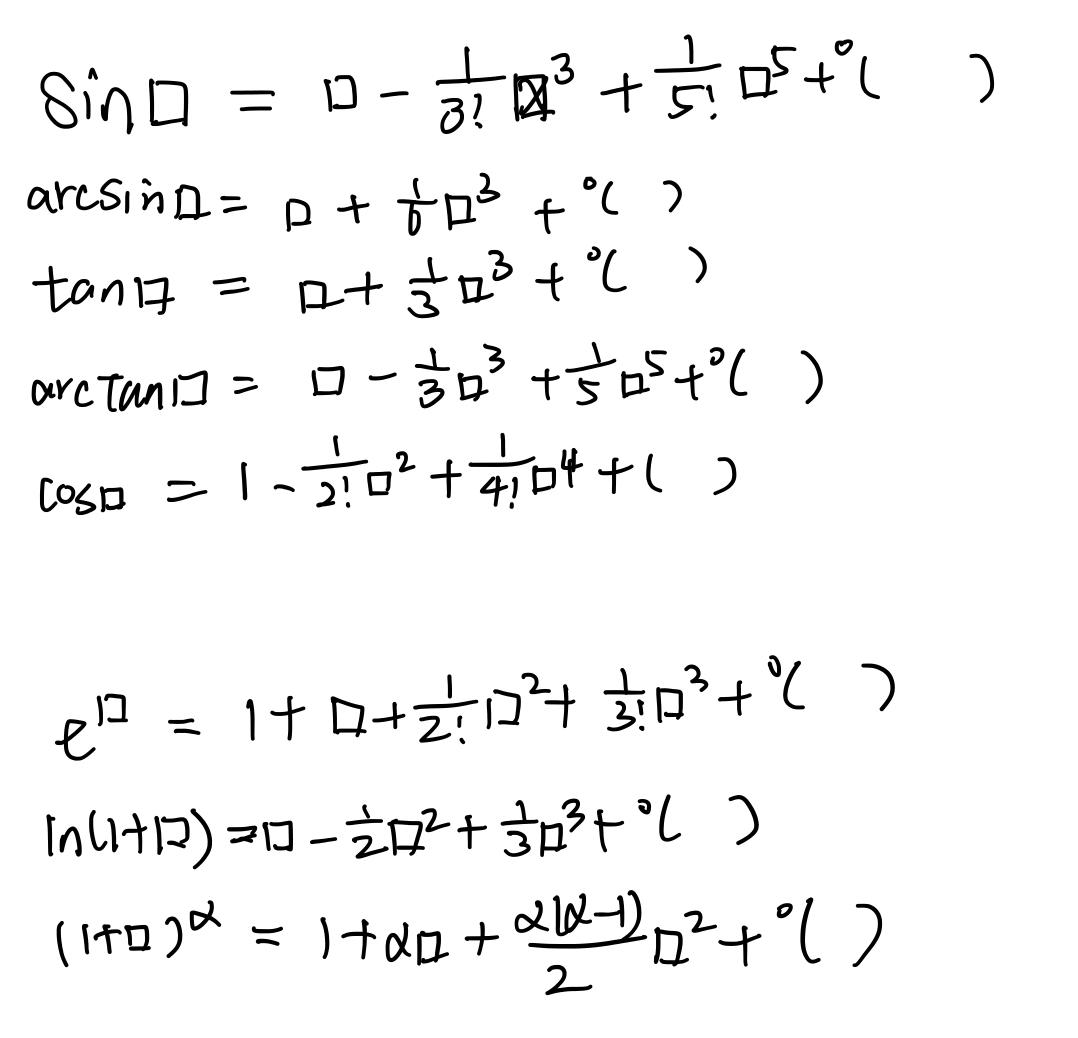 sin□ = □ - 1/3! □³ + 1/5! □⁵ + o( )
arcsin□ = □ + 1/6 □³ + o( )
tan□ = □ + 1/3 □³ + o( )
arctan□ = □ - 1/3 □³ + 1/5 □⁵ + o( )
cos□ = 1 - 1/2! □² + 1/4! □⁴ + ( )
e^□ = 1 + □ + 1/2! □² + 1/3! □³ + o( )
ln(1+□) = □ - 1/2 □² + 1/3 □³ + o( )
(1+□)^α = 1 + α□ + α(α-1)/2 □² + o( )